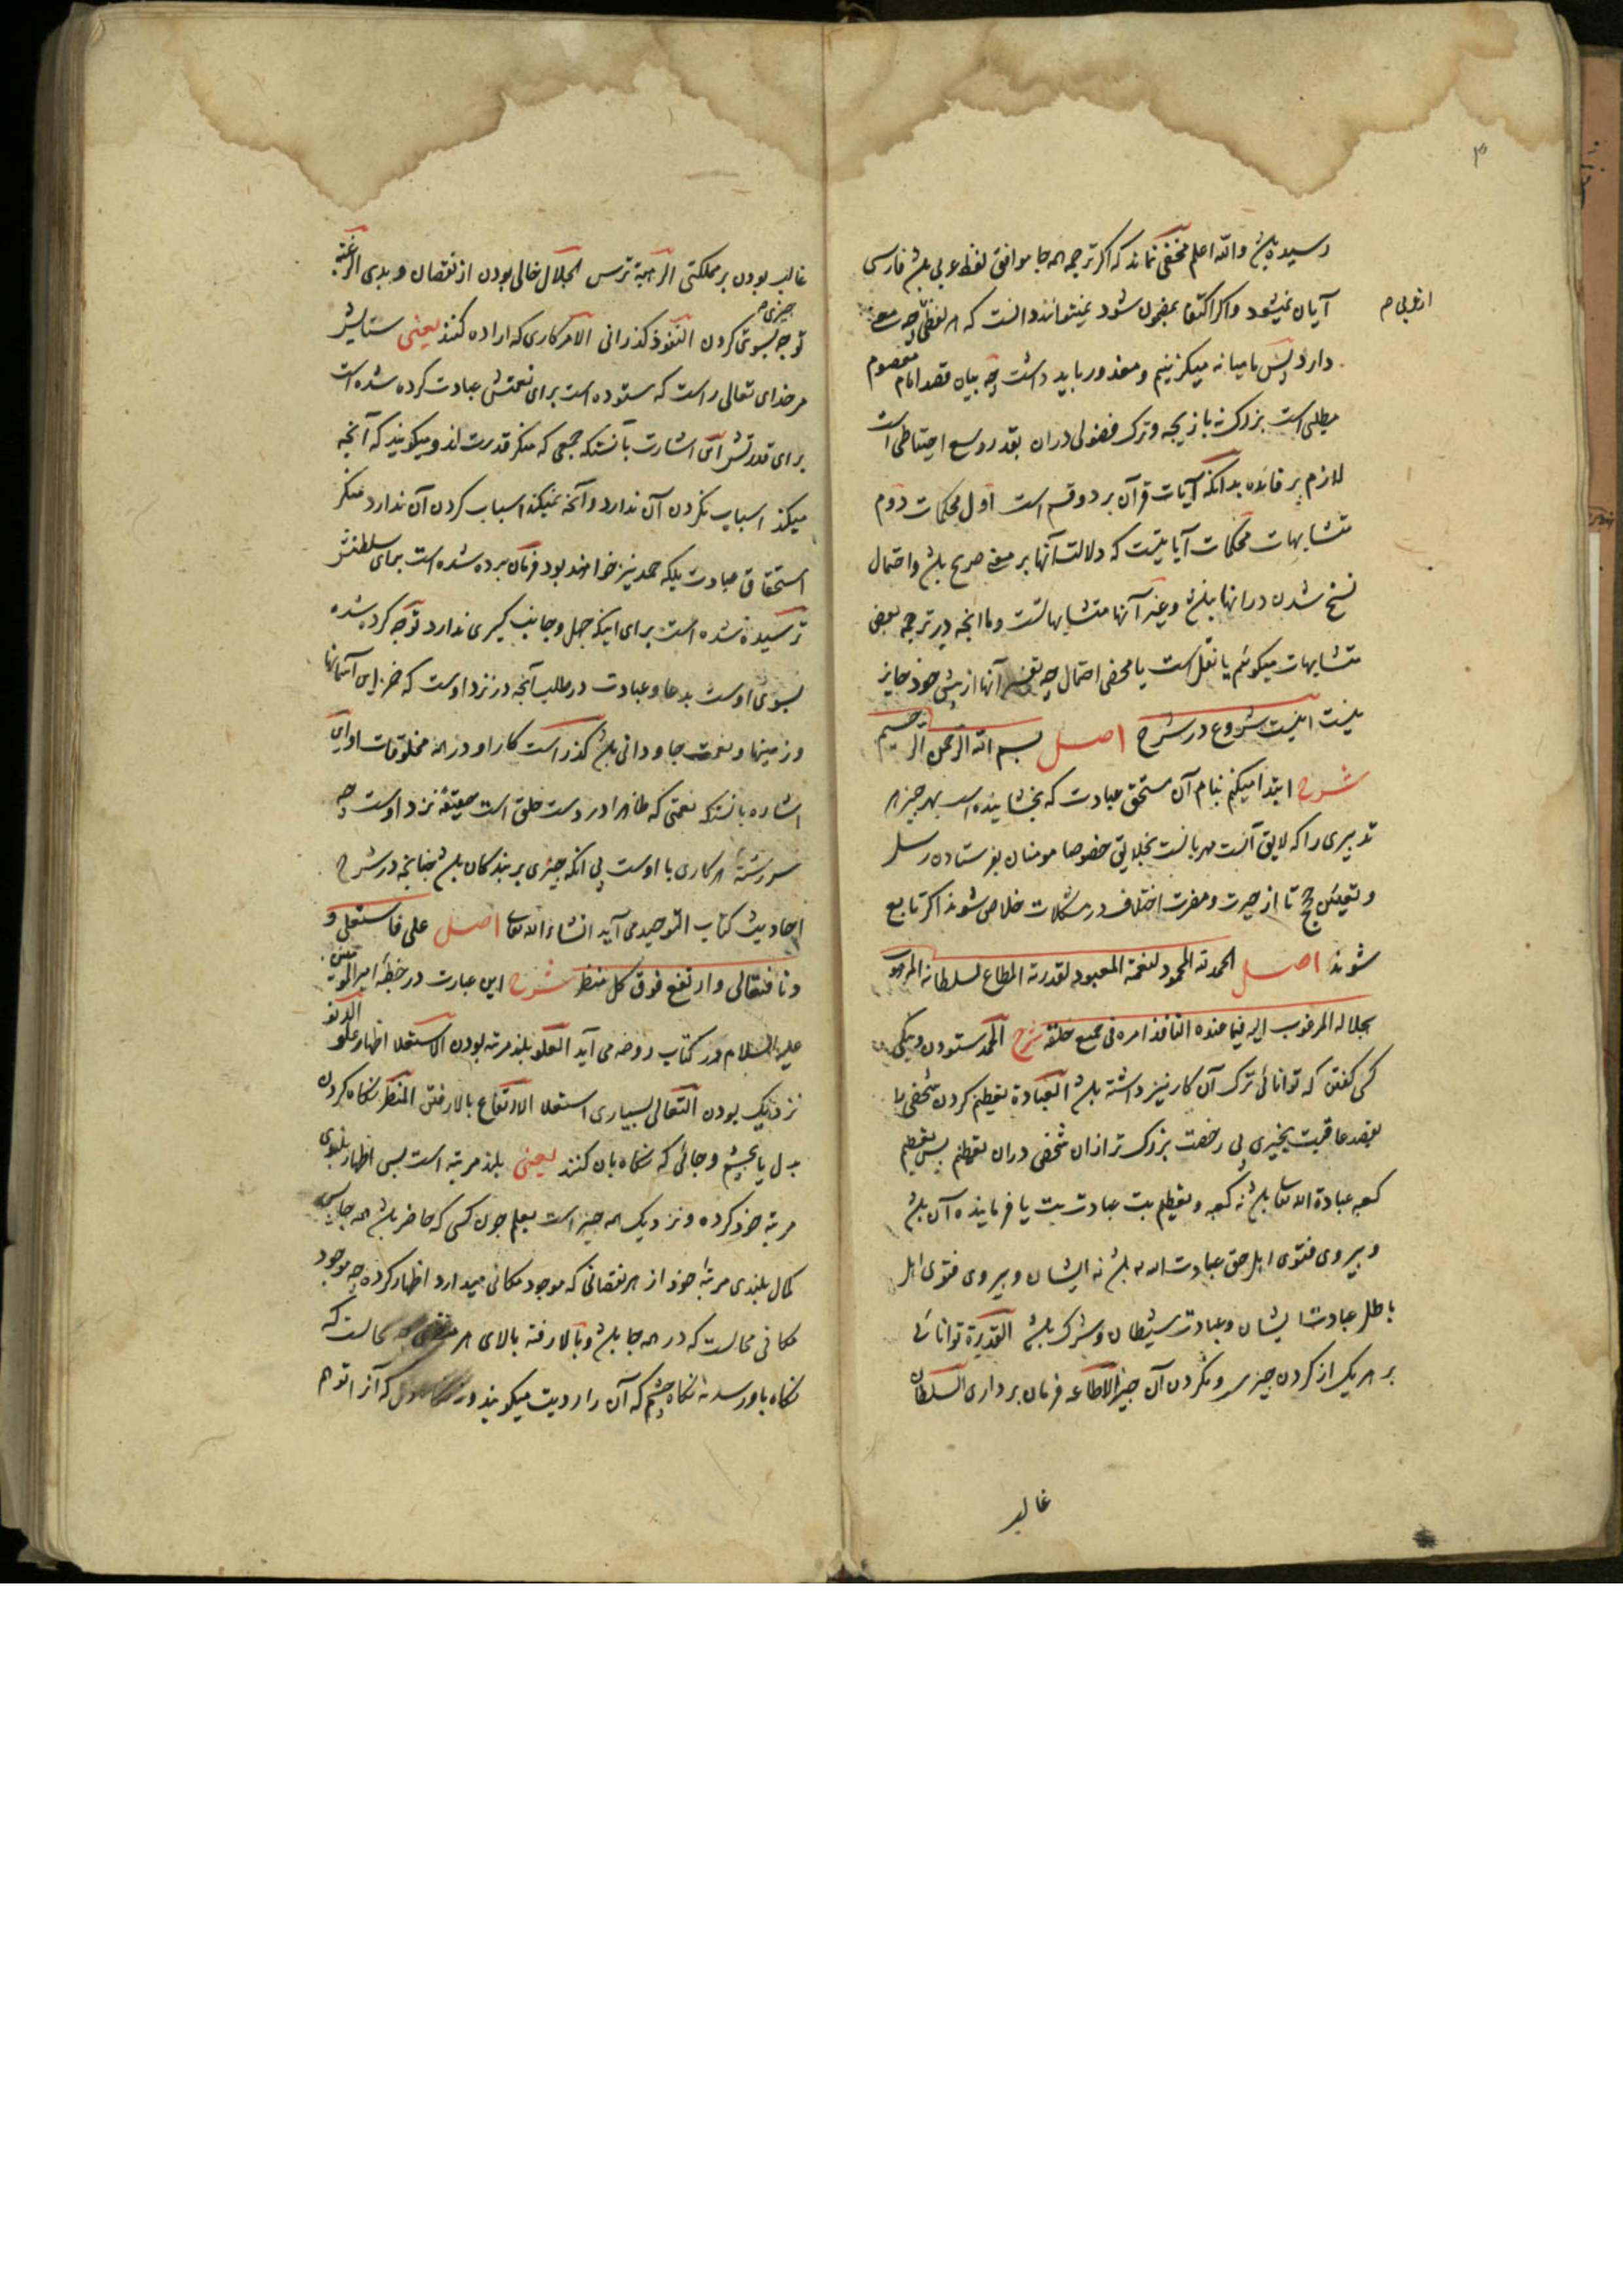 ۳
رسیده باشد والله اعلم مخفی نماند که اگر ترجمه همه جا موافق لفظ عربی باشد فارسی
آیان نمیشود و اگر اکتفا بمضمون شود نمیتوانند دانست که هر لفظی چه معنی
از عربی م
دارد پس ما میانه میگزینیم و معذور باید داشت چه بیان قصد امام معصوم
مطلبی است بزرگ نه بازیچه و ترک فضولی دران بقدر وسع احتیاطی است
لازم بر فائده بدانکه آیات قرآن بر دو قسم است اول محکمات دوم
متشابهات محکمات آیاتیست که دلالت آنها بر معنی صریح باشد و احتمال
نسخ شدن در انها نباشد و غیر آنها متشابهاتست و ما انچه در ترجمه بعض
متشابهات میگوئیم یا نقل است یا محض احتمال چه تفسیر آنها از پیش خود جایز
نیست اینست شروع در شرح اصل بسم الله الرحمن الرحیم
شرح ابتدا میکنم بنام آن مستحق عبادت که بخشاینده است بهر چیز هر
تدبیری را که لایق آنست مهربانست بخلایق خصوصا مومنان بفرستادن رسل
و تعیین حجج تا از حیرت و مضرت اختلاف در مشکلات خلاص شوند اگر تابع
شوند اصل الحمد لله المحمود لنعمته المعبود لقدرته المطاع لسلطانه المرهوب
بجلاله المرغوب الیه فیما عنده النافذ امره فی جمیع خلقه شرح الحمد ستودن و نیکی
کسی گفتن که توانائی ترک آن کار نیز داشته باشد العبادة تعظیم کردن شخصی با
بقصد عاقبت بخیری بی رخصت بزرگ تر ازان شخص دران تعظیم پس تعظیم
کعبه عبادة الله تعالی باشد نه کعبه و تعظیم بت عبادت بت یا فرماینده آن باشد
و پیروی فتوی اهل حق عبادت الله باشد نه ایشان و پیروی فتوی اهل
باطل عبادت ایشان و عبادت شیطان و شرک باشد القدرة توانائی
بر هر یک از کردن چیزی و نکردن آن چیز الاطاعه فرمان برداری السلطان
غالب
غالب بودن بر مملکتی الرهبة ترس الجلال خالی بودن از نقصان و بدی الرغبة
توجه بسوی چیزی کردن النفوذ گذرانی الامر کاری که اراده کنند یعنی ستایش
مر خدای تعالی راست که ستوده است برای نعمتش عبادت کرده شده است
برای قدرتش ای اشارت بآنستکه جمعی که منکر قدرت اند و میگویند که آنچه
میکند اسباب نکردن آن ندارد و آنچه نمیکند اسباب کردن آن ندارد منکر
استحقاق عبادت بلکه حمد نیز خواهند بود فرمان برده شده است برای سلطنتش
ترسیده شده است برای اینکه جهل و جانب گیری ندارد توجه کرده شده
بسوی اوست بدعا و عبادت در طلب آنچه در نزد اوست که خزاین آسمانها
و زمینها و نعمت جاودانی باشد گذراست کار او در همه مخلوقات او این
اشاره بانستکه نعمتی که ظاهرا در دست خلق است حقیقة نزد اوست چه
سررشته هر کاری با اوست بی انکه جبری بر بندگان باشد چنانچه در شرح
احادیث کتاب التوحید می آید انشاء الله تعالی اصل علی فاستعلی و
دنا فتعالی و ارتفع فوق کل منظر شرح این عبارت در خطبه امیر المومنین
علیه السلام در کتاب روضه می آید العلو بلند مرتبه بودن الاستعلا اظهار علو الدنو
نزدیک بودن التعالی بسیاری استعلا الارتفاع بالا رفتن المنظر نگاه کردن
بدل یا بچشم و جائی که نگاه بان کنند یعنی بلند مرتبه است پس اظهار بلندی
مرتبه خود کرده و نزدیک همه چیز است بعلم چون کسی که حاضر باشد همه جا پس
کمال بلندی مرتبه خود از هر نقصانی که موجود مکانی میدارد اظهار کرده چه موجود
مکانی محالست که در همه جا باشد و بالا رفته بالای هر چه محالست که
نگاه باو رسد نه نگاه چشم که آن را رویت میگویند و نه دل که آنرا توهم